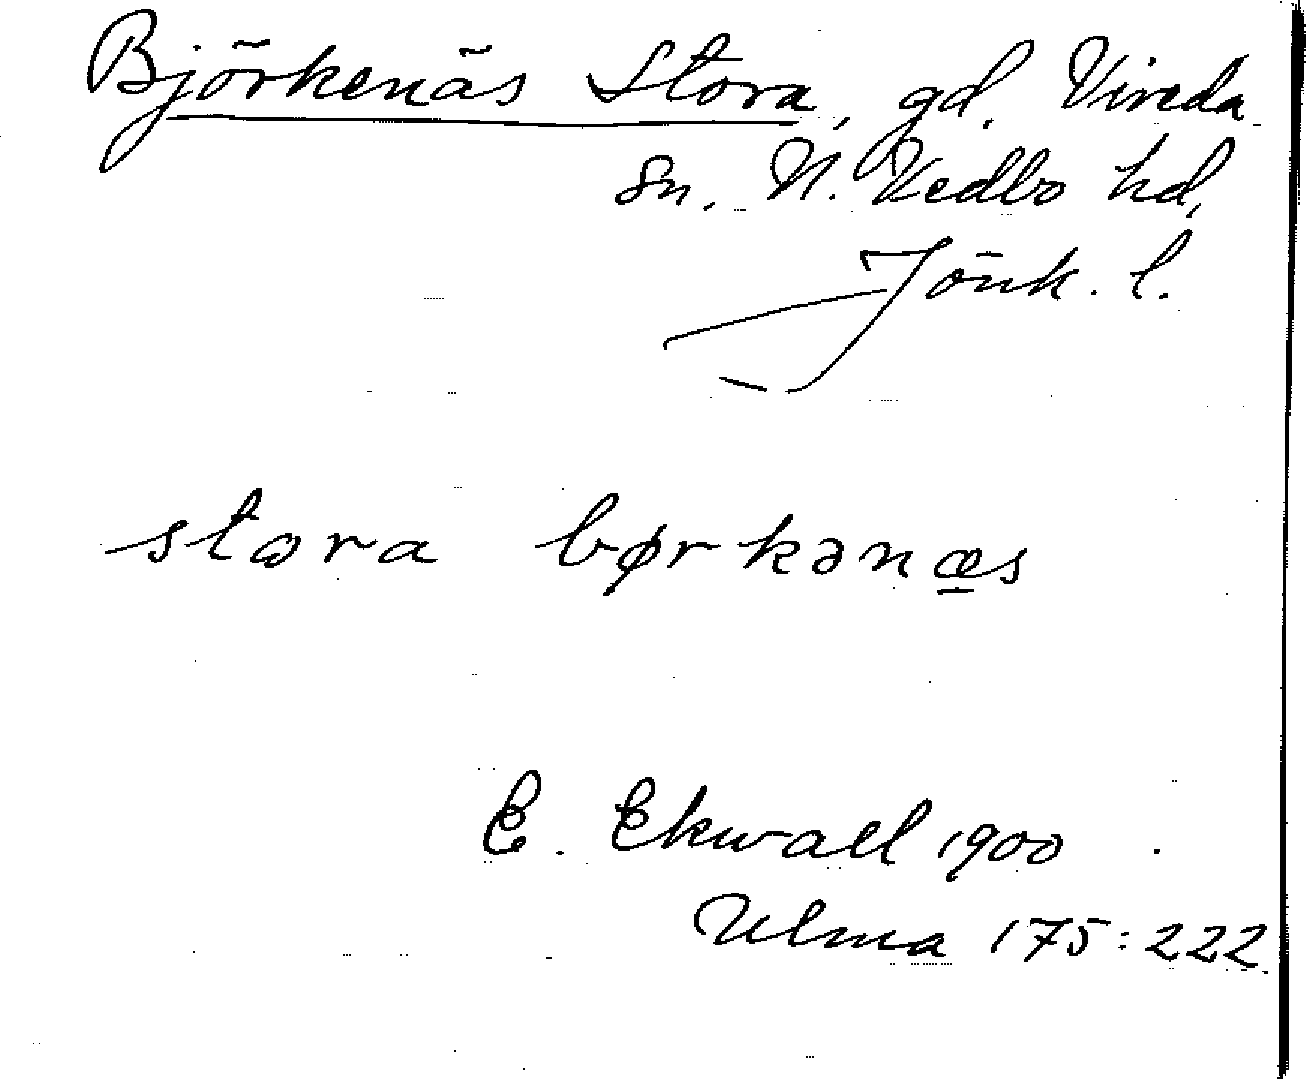 Björkenäs Stora, gd. Vireda
sn. N. Vedbo hd,
Jönk. l.
stora børkənæs
E. Ekwall 1900
Ulma 175:222